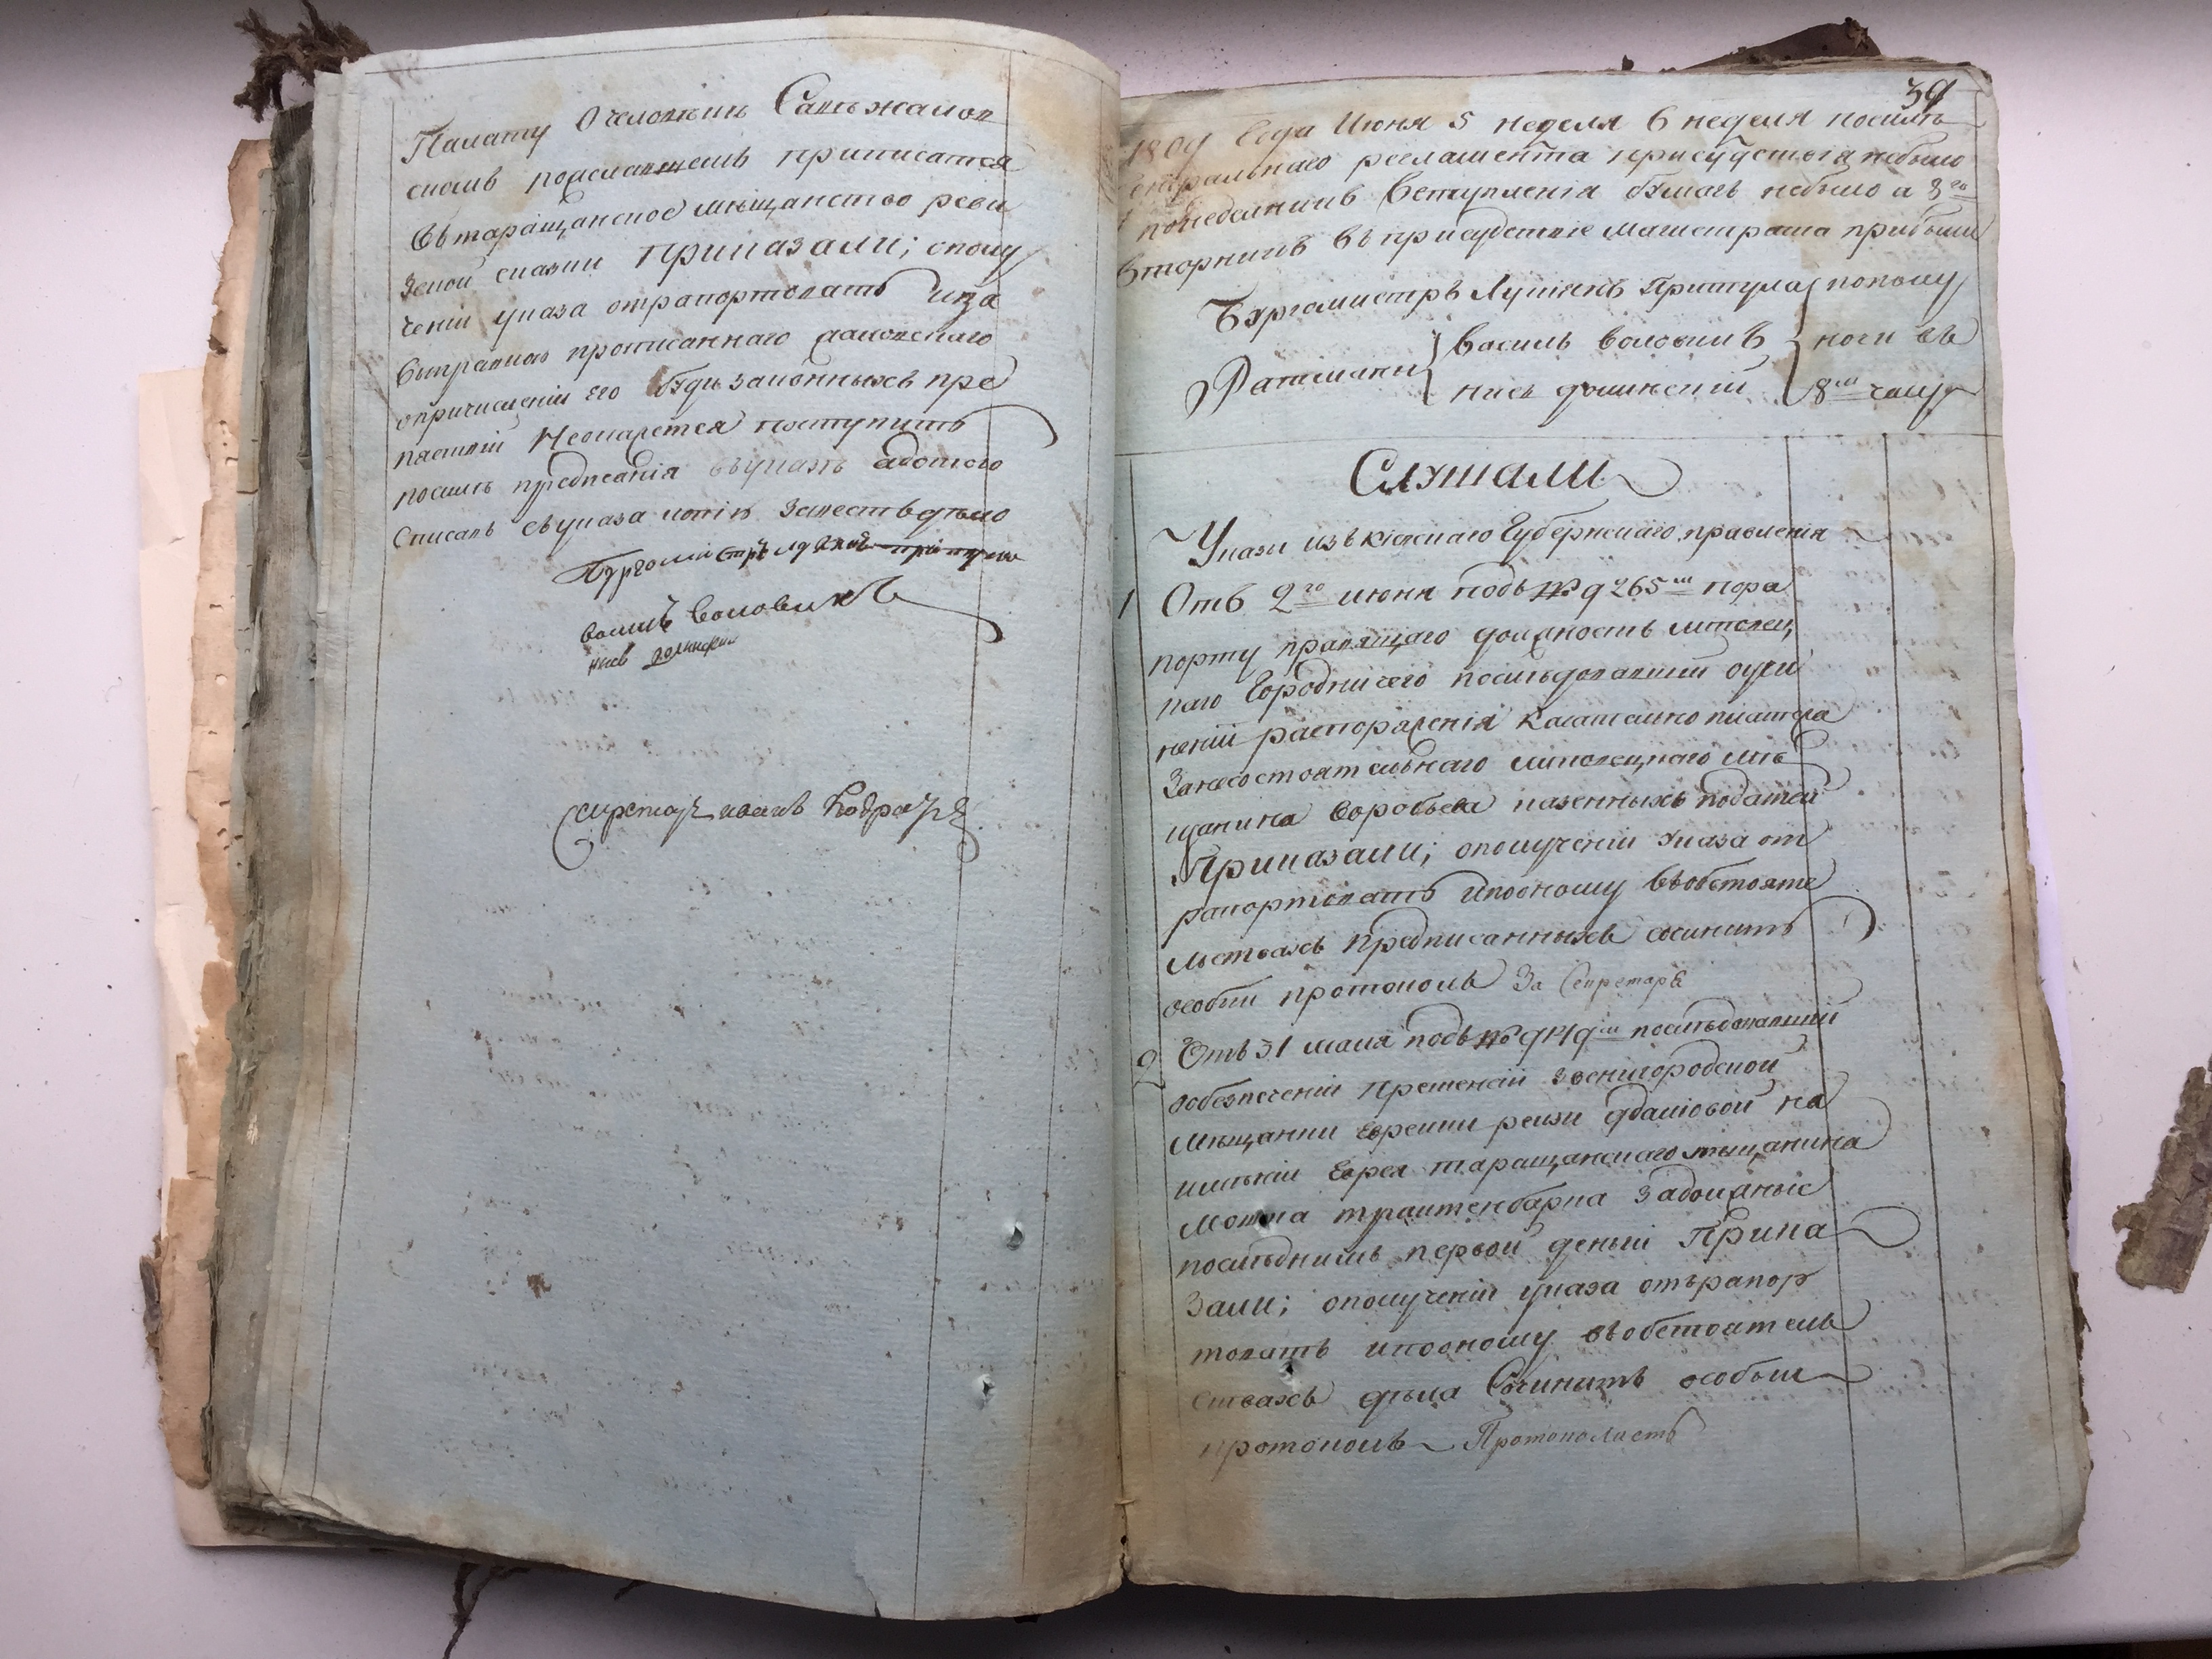 Палату О человѣкѣ Самъжалов
скомъ розисканшемъ приписатся
Въ таращанское мѣщанство реви
Зской сказки Приказали; о полу
ченіи указа отрапортовать и за
Выправкою прописаннаго
о причисленіи его буди законныхъ пре
пяствій Неокажется поступить
посилѣ предписанія въ указѣ а для того
Списавъ съ указа копію Завесть дѣло
Бургомистръ Лукянъ притула
василь воловикъ
нисъ долинский
Секретарь иванъ
39
1809 Года Июня 5 неделя 6 неделя посилѣ
енеральнаго регламента присудствія небыло
7 понеделникъ Вступленія бумагъ небыло а 8го
Вторникъ въ присудствіе магистрата прибыли
Бургомистръ Лукіянъ Притула пополу
Василь воловикъ ночи въ
Ратсмани
нисъ долинскій 8м часу
Слушали
Укази изъ кіевскаго Губернскаго правленія
1 Отъ 2го июня подъ № 9265м по ра
порту правящаго должность липовец
каго Городничего последовавшій о учи
неніи распоряженія касателно платежа
За несостоятельнаго липовецкаго мѣ
щанина воробьева казенныхъ податей
Приказали; о полученіи указа от
рапортовать и по оному въ обстояте
льствахъ предписанныхъ сочинить
особый протоколъ За Секретаря
2 Отъ 31 мая подъ № 9149м последовавшій
о обезпеченіи претензіи звенигородской
мѣщанки еврейки рейзи на
имѣніи Еврея таращанскаго мѣщанина
Мошка траитенбарга За должныіе
последнимъ первой деньги Прика
Зали; о полученіи указа отърапор
товать и по оному въ обстоятель
ствахъ дѣла Сочинить особый
протоколъ Протоколистъ